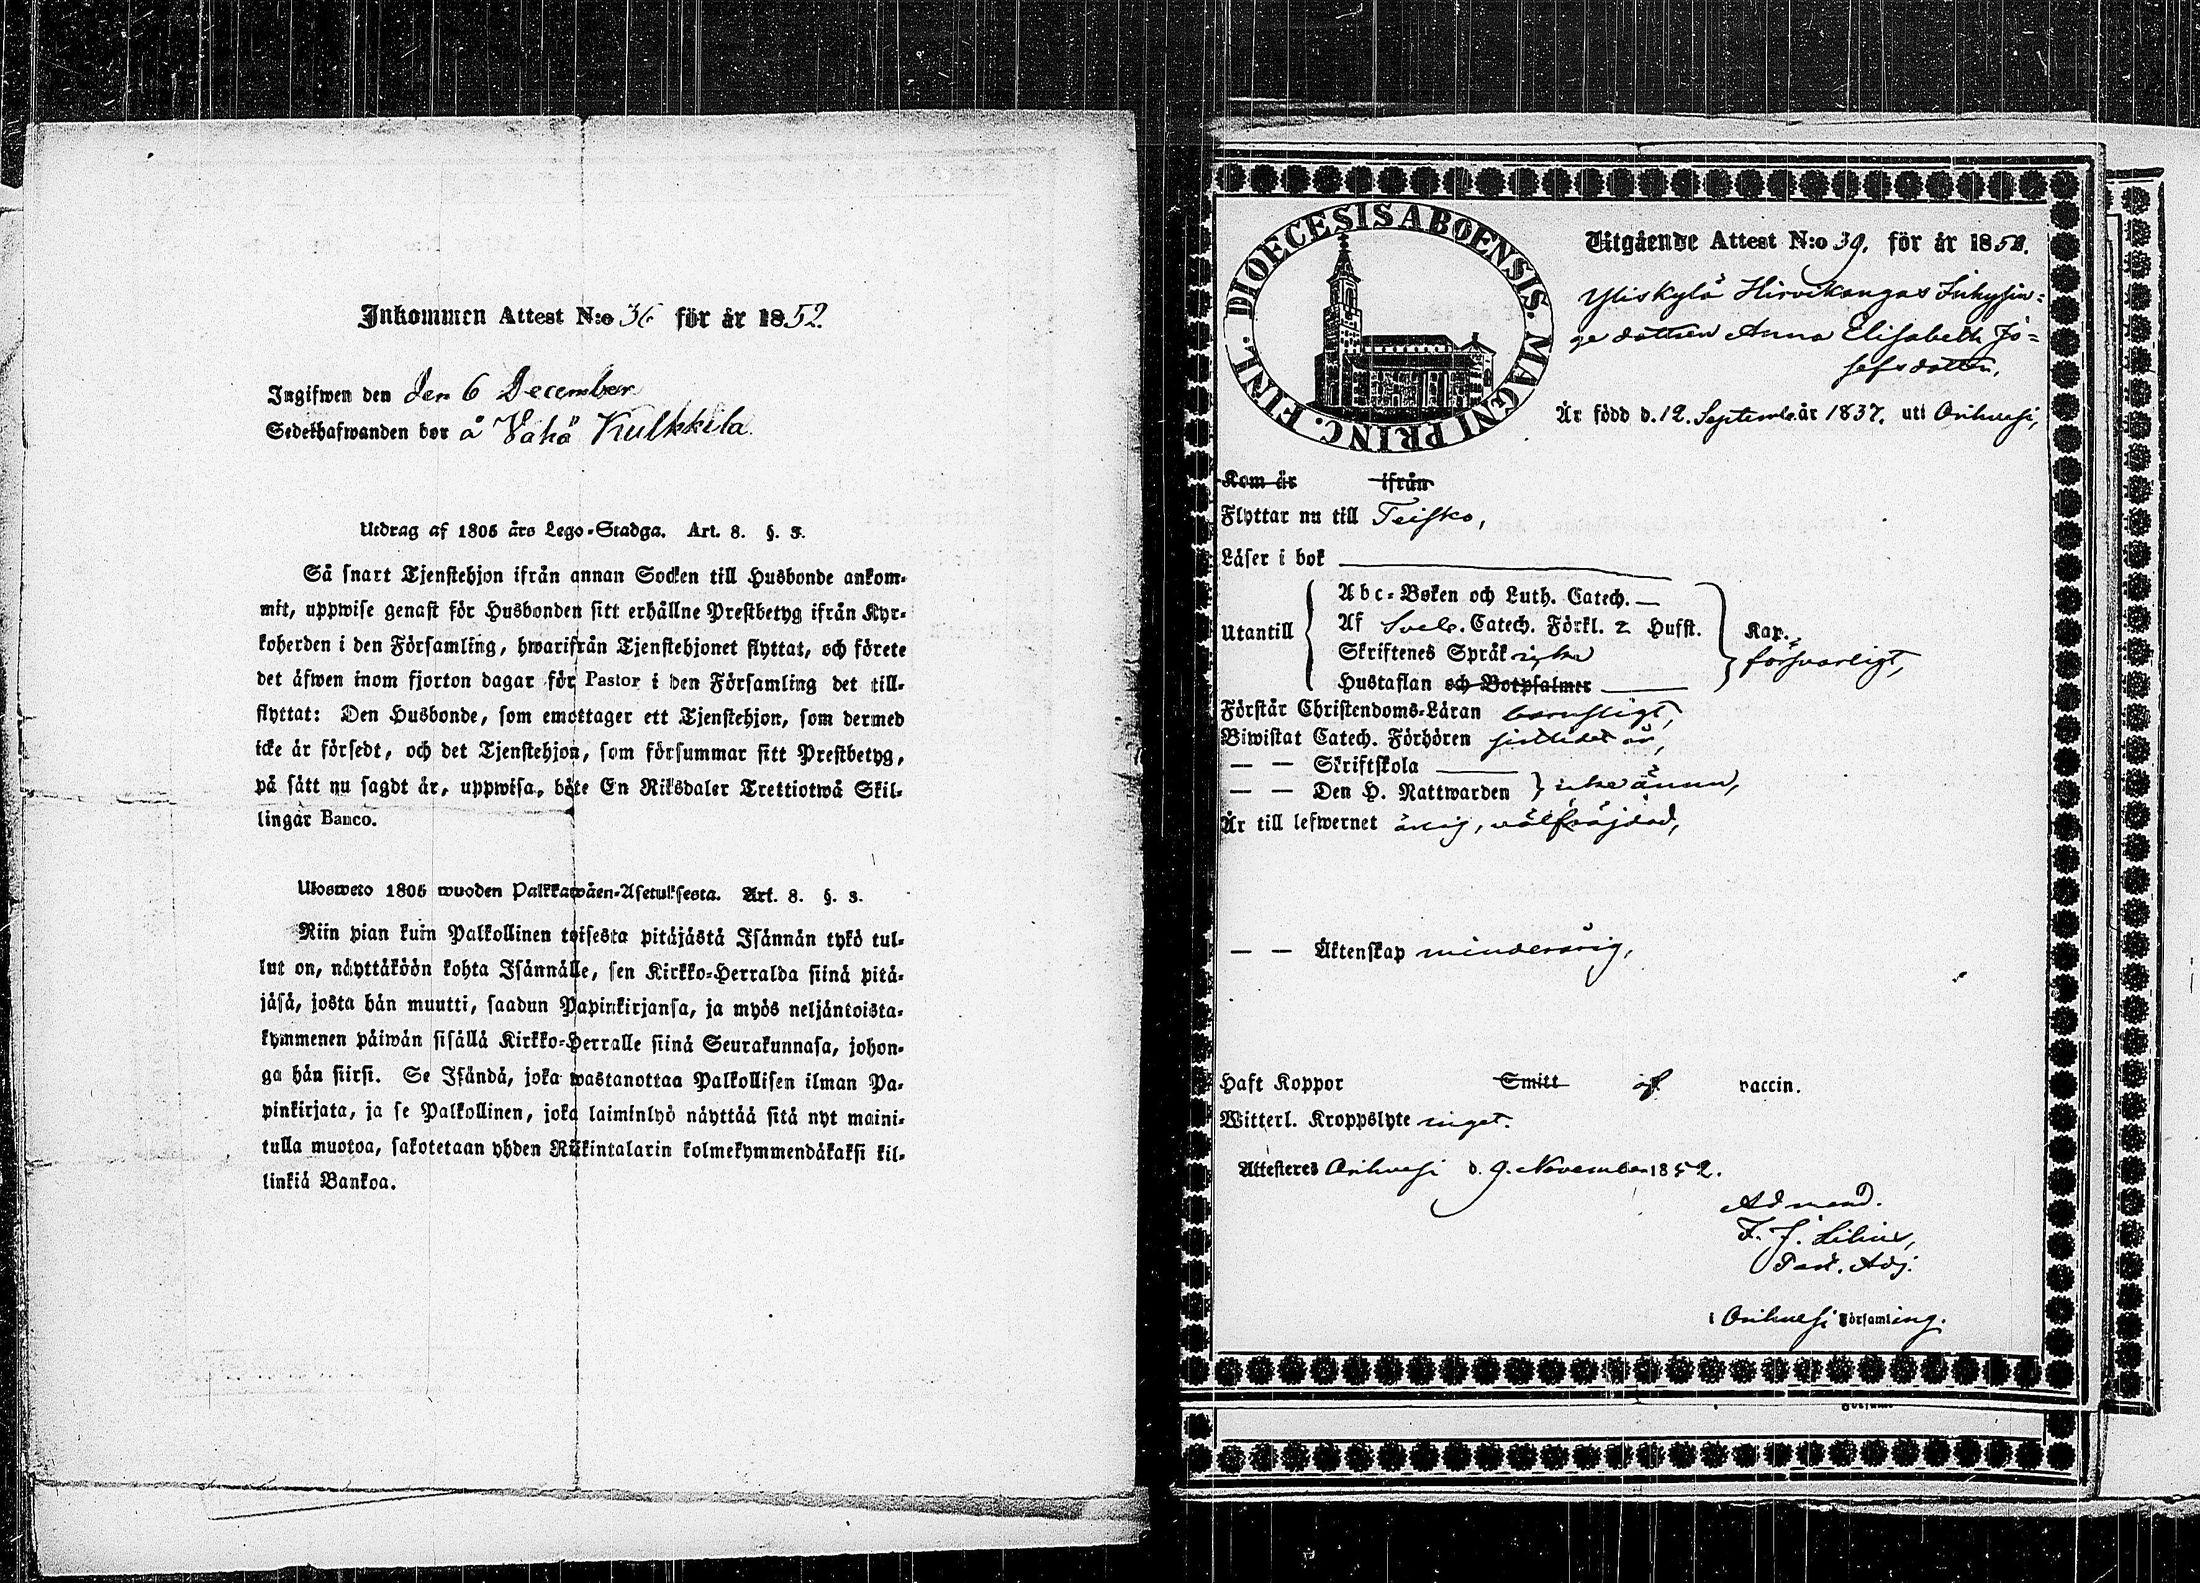 Inkommen Attest N:o 36 för år 1852.
Ingifwen den den 6 December
Sedelhafwanden bor å Vähä Kulkkila.
Utdrag af 1805 års Lego-Stadga. Art. 8. §. 3.
Så snart Tjenstehjon ifrån annan Socken till Husbonde ankom-
mit, uppwise genast för Husbonden sitt erhållne Prestbetyg ifrån Kyr-
koherden i den Församling, hwarifrån Tjenstehjonet flyttat, och förete
det äfwen inom fjorton dagar för Pastor i den Församling det till-
flyttat: Den Husbonde, som emottager ett Tjenstehjon, som dermed
icke är försedt, och det Tjenstehjon, som försummar sitt Prestbetyg,
på sätt nu sagdt är, uppwisa, böte En Riksdaler Trettiotwå Skil-
lingar Banco.
Ulosweto 1805 wuoden Palkkawäen-Asetuksesta. Art. 8. §. 3.
Niin pian kuin Palkollinen toisesta pitäjästä Isännän tykö tul-
lut on, näyttäköön kohta Isännälle, sen Kirkko-Herralda siinä pitä-
jäsä, josta hän muutti, saadun Papinkirjansa, ja myös neljäntoista-
kymmenen päiwän sisällä Kirkko-Herralle siinä Seurakunnasa, johon-
ga hän siirsi. Se Isändä, joka wastanottaa Palkollisen ilman Pa-
pinkirjata, ja se Palkollinen, joka laiminlyö näyttää sitä nyt maini-
tulla muotoa, sakotetaan yhden Riikintalarin kolmekymmendäkaksi kil-
linkiä Bankoa.
DIOECESIS ABOENSIS. MAGNI PRINC. FINL.
Utgående Attest N:o 39. för år 1852.
Yliskylä Hirvikangas Inhysin-
ge dottren Anna Elisabeth Jo-
sefsdotter,
Är född d. 12. Septemb. år 1837. uti Orihvesi,
Kom år ifrån
Flyttar nu till Teisko,
Läser i bok
Abc-Boken och Luth. Catech. —
Utantill Af Sveb. Catech. Förkl. 2 Husst. Kap.
Skriftenes Språk försvarligt,
Hustaflan och Botpsalmer
Förstår Christendoms-Läran
Biwistat Catech. Förhören
— — Skriftskola
— — Den H. Nattwarden } icke ännu,
Är till lefwernet ärlig, välfräjdad,
— — Äktenskap minderårig,
Haft Koppor Smitt af vaccin.
Witterl. Kroppslyte inget.
Attesteras Orihvesi d. 9. November 1852.
F. J. Lilius,
Past. Adj.
i Orihvesi Församling.